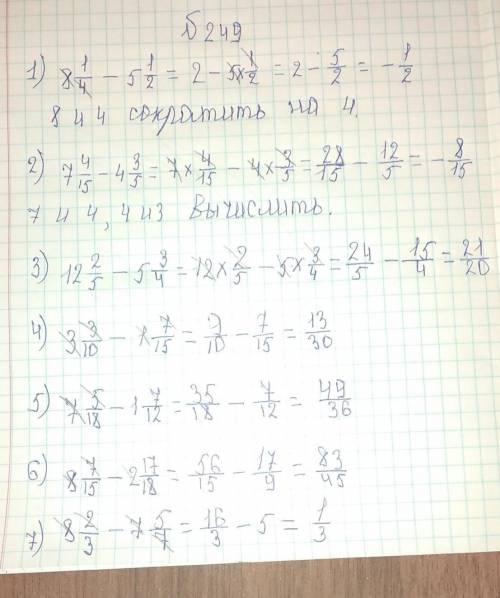 №249
1) 8 1/4 − 5 1/2 = 2 − 5×1/2 = 2 − 5/2 = −1/2
8 и 4 сократить на 4.
2) 7 4/15 − 4 3/5 = 7×4/15 − 4×3/5 = 28/15 − 12/5 = −8/15
7 и 4, 4 и 3 вычислить.
3) 12 2/5 − 5 3/4 = 12×2/5 − 5×3/4 = 24/5 − 15/4 = 21/20
4) 3 3/10 − 1×7/15 = 9/10 − 7/15 = 13/30
5) 7 5/18 − 1 7/12 = 35/18 − 7/12 = 49/36
6) 8 7/15 − 2 17/18 = 56/15 − 17/9 = 83/45
7) 8 2/3 − 7 5/7 = 16/3 − 5 = 1/3